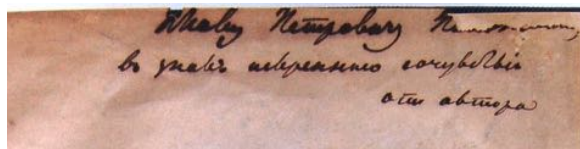 Якову Петровичу
въ знакъ искренняго сочувствія
отъ автора